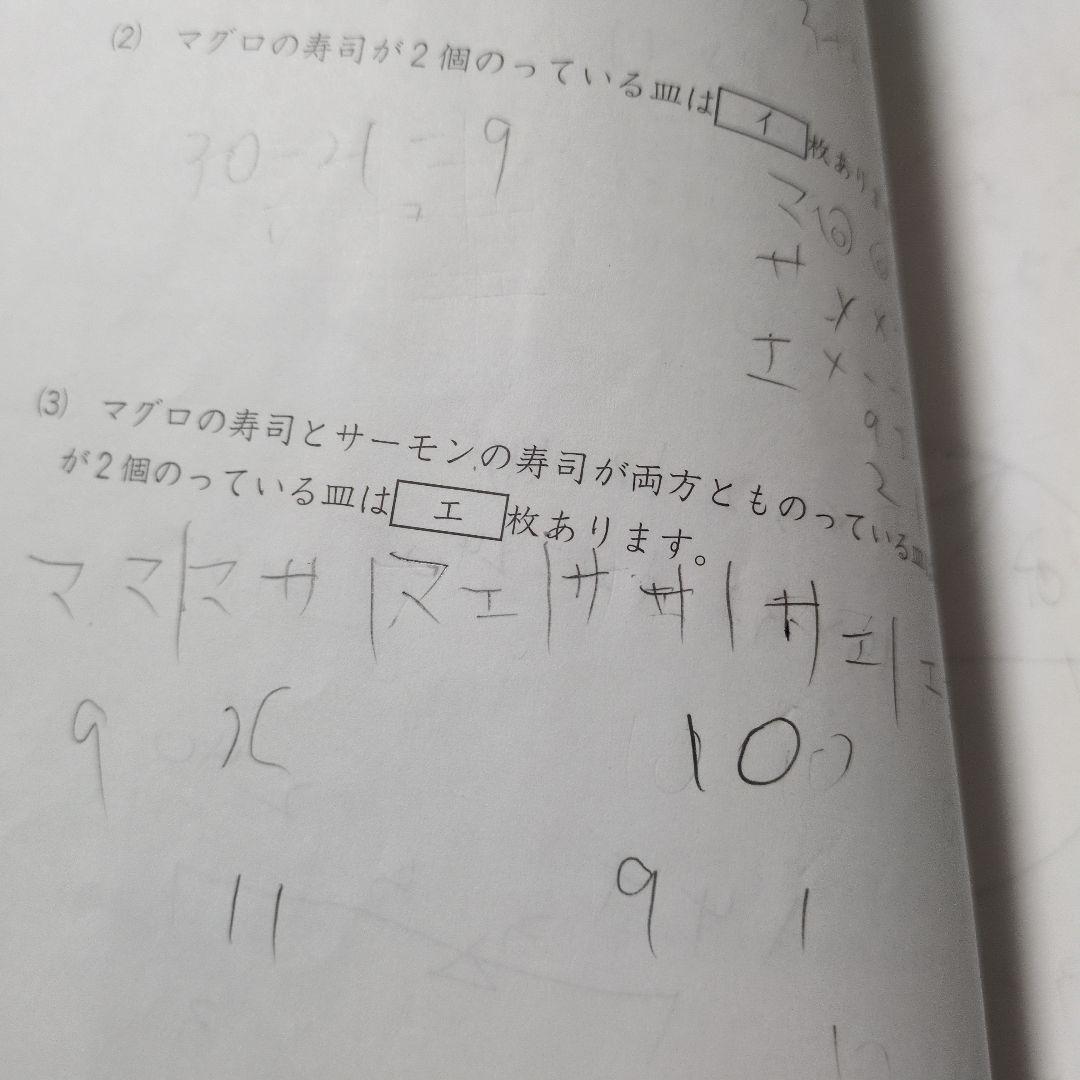 (2) マグロの寿司が2個のっている皿は イ 枚あり
30-21=9
マ
サ
エ
(3) マグロの寿司とサーモンの寿司が両方とものっている皿
が2個のっている皿は エ 枚あります。
ママ|マサ|マエ|ササ|サエ|エ
9 x 10
11 9 1